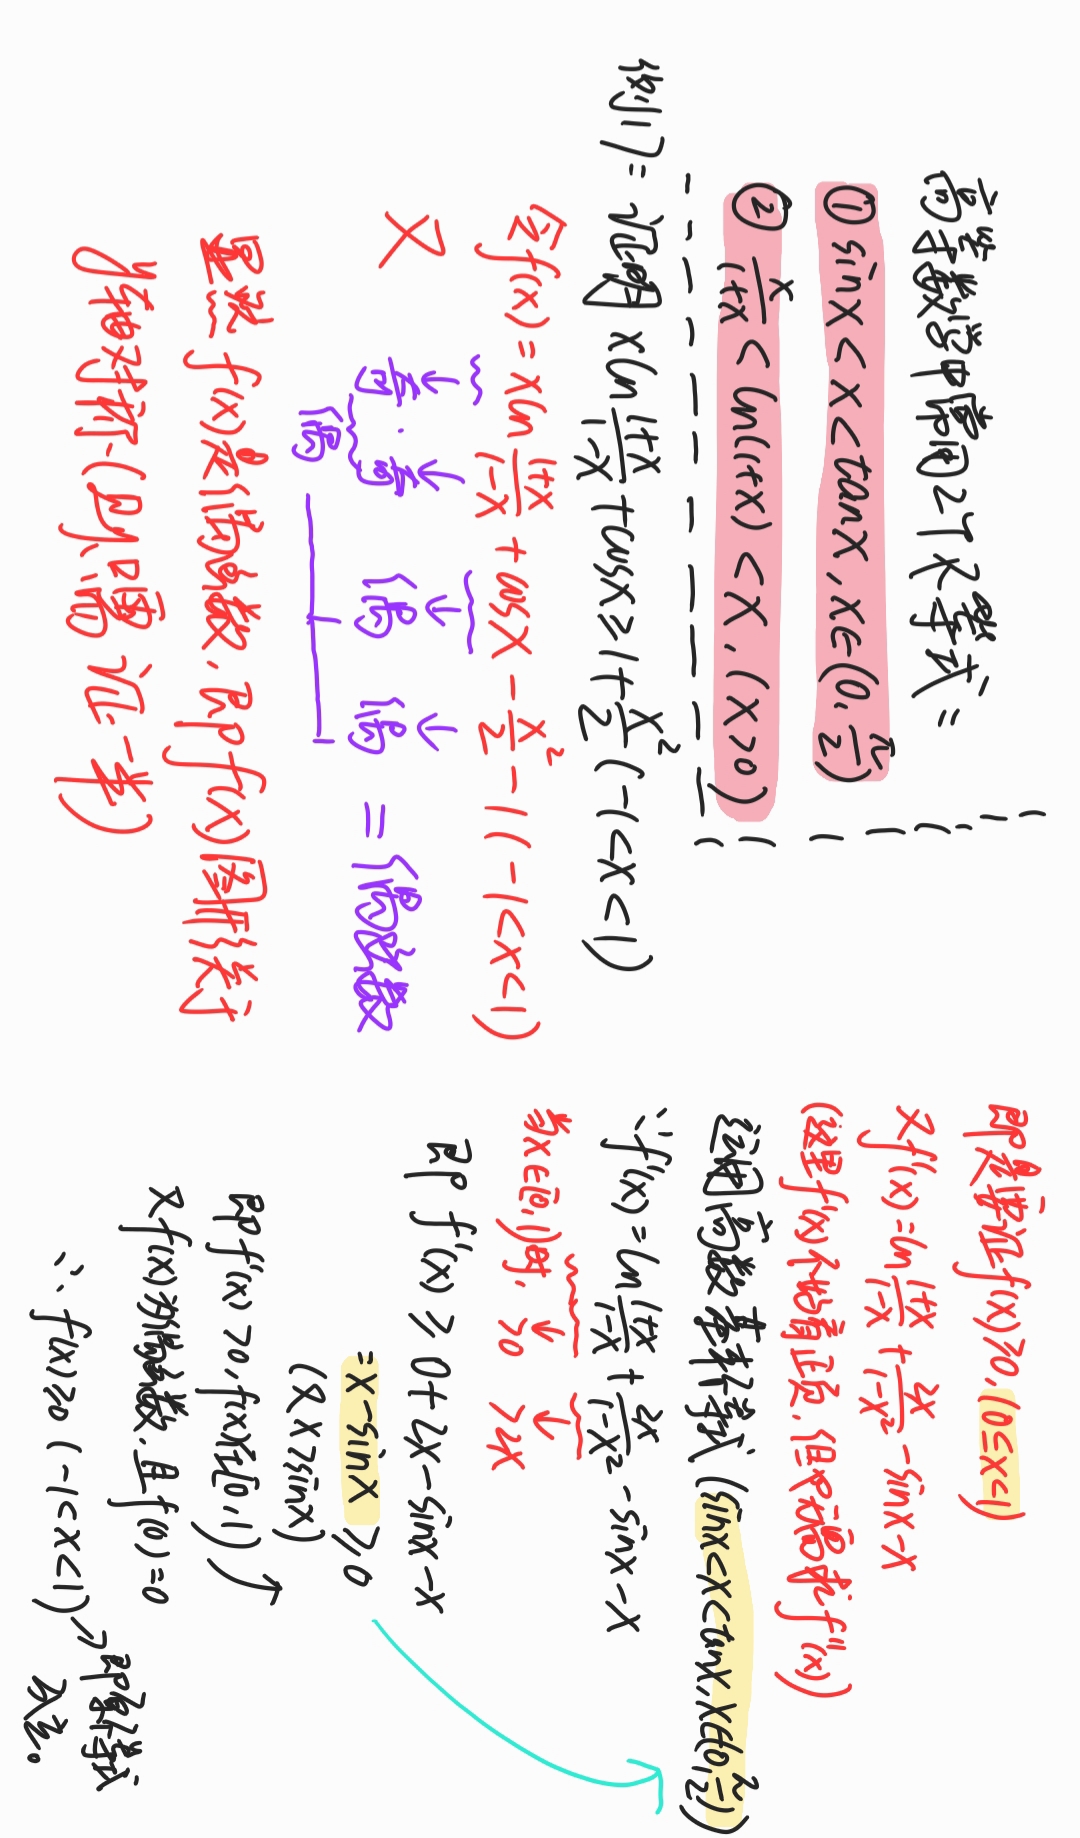 高等数学中常用2个不等式:
① sinx < x < tanx, x∈(0, π/2)
② x/(1+x) < ln(1+x) < x, (x>0)
例17: 证明 xln (1+x)/(1-x) + cosx ≥ 1 + x²/2 (-1<x<1)
令f(x) = xln (1+x)/(1-x) + cosx - x²/2 - 1 (-1<x<1)
又 奇·奇 偶 偶 = 偶函数
偶
显然 f(x)是偶函数, 即f(x)图形关于
y轴对称(则只需证一半)
即是要证f(x)≥0, (0≤x<1)
又f'(x)=ln (1+x)/(1-x) + 2x/(1-x²) - sinx - x
(这里f'(x)不好看正负, 但也无需求f''(x))
运用高数基本不等式 (sinx<x<tanx, x∈(0, π/2))
∵f'(x)=ln (1+x)/(1-x) + 2x/(1-x²) - sinx - x
当x∈[0,1)时, ↓>0 ↓>2x
即 f'(x) ≥ 0+2x-sinx-x
=x-sinx ≥0
(又 x>sinx)
即f'(x) >0, f(x)在[0,1)↗
又f(x)为偶函数, 且f(0)=0
∴ f(x)≥0 (-1<x<1) → 即原不等式
成立。